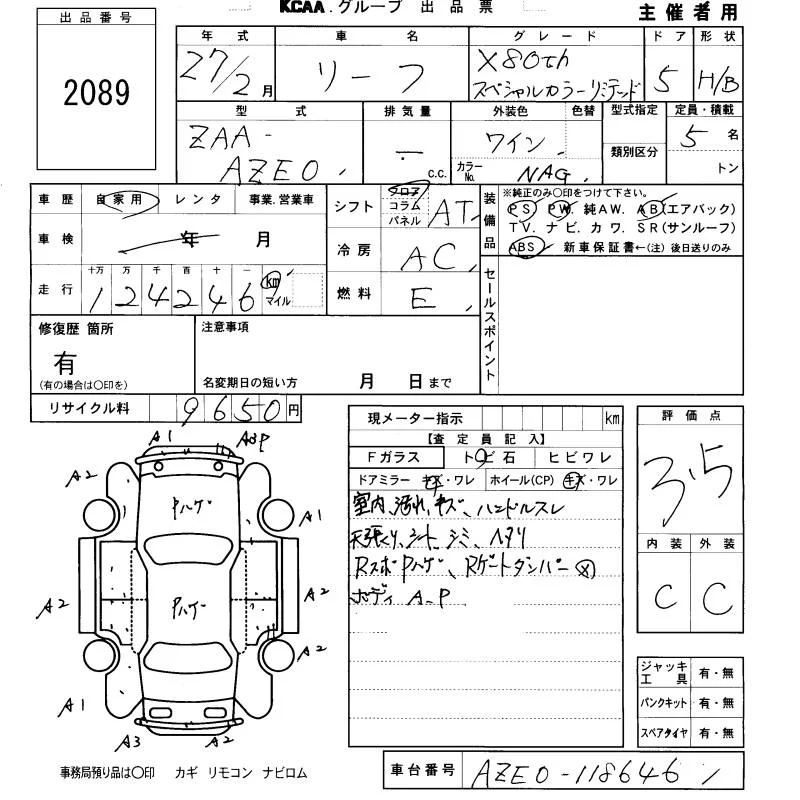 KCAA.グループ 出品票 主催者用
出品番号
2089
年式 車名 グレード ドア 形状
27/2月 リーフ X80th スペシャルカラーリミテッド 5 H/B
型式 排気量 外装色 色替 型式指定 定員・積載
ZAA-AZE0 - c.c. ワイン 類別区分 5名
カラーNo. NAG トン
車歴 自家用 レンタ 事業.営業車
シフト フロア コラム パネル AT
装備品 ※純正のみ○印をつけて下さい。
PS PW 純AW. AB(エアバック)
TV. ナビ. カワ. SR(サンルーフ)
ABS 新車保証書←(注) 後日送りのみ
車検 年 月
冷房 AC
走行 十万 万 千 百 十 一
124246 km マイル
燃料 E
セールスポイント
修復歴 箇所
有
(有の場合は○印を)
注意事項
名変期日の短い方 月 日まで
リサイクル料 9650円
現メーター指示 km
評価点
3.5
【査定員記入】
Fガラス トビ石 ヒビワレ
ドアミラー キズ・ワレ ホイール(CP) キズ・ワレ
室内、汚れ、キズ、ハンドルスレ
天張り、シート、シミ、ヘタリ
RスポPハゲ、Rゲートダンパー☒
ボディ A-P
内装 外装
C C
A1 A3P
A2 Pハゲ A1
A2 Pハゲ A2
A2
A1
A3 A2
ジャッキ工具 有・無
パンクキット 有・無
スペアタイヤ 有・無
事務局預り品は○印 カギ リモコン ナビロム
車台番号 AZE0-118646